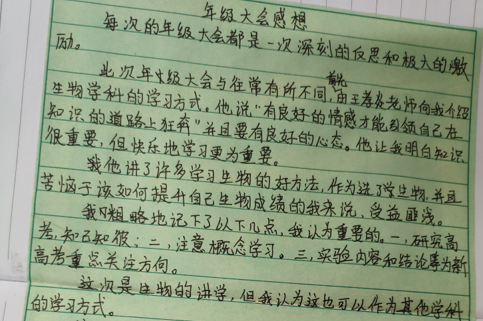 年级大会感想
每次的年级大会都是一次深刻的反思和极大的激
励。
此次年级大会与往常有所不同,首先由王孝发老师向我介绍
生物学科的学习方式。他说"有良好的情感才能引领自己在
知识的道路上狂奔"并且要有良好的心态。他让我明白知识
很重要,但快乐地学习更为重要。
我他讲了许多学习生物的好方法,作为选了学生物,并且
苦恼于该如何提升自己生物成绩的我来说,受益匪浅。
我粗略地记下了以下几点,我认为重要的。一,研究高
考,知己知彼;二,注意概念学习。三,实验内容和结论等为新
高考重点关注方向。
这次是生物的讲学,但我认为这也可以作为其他学科
的学习方式。